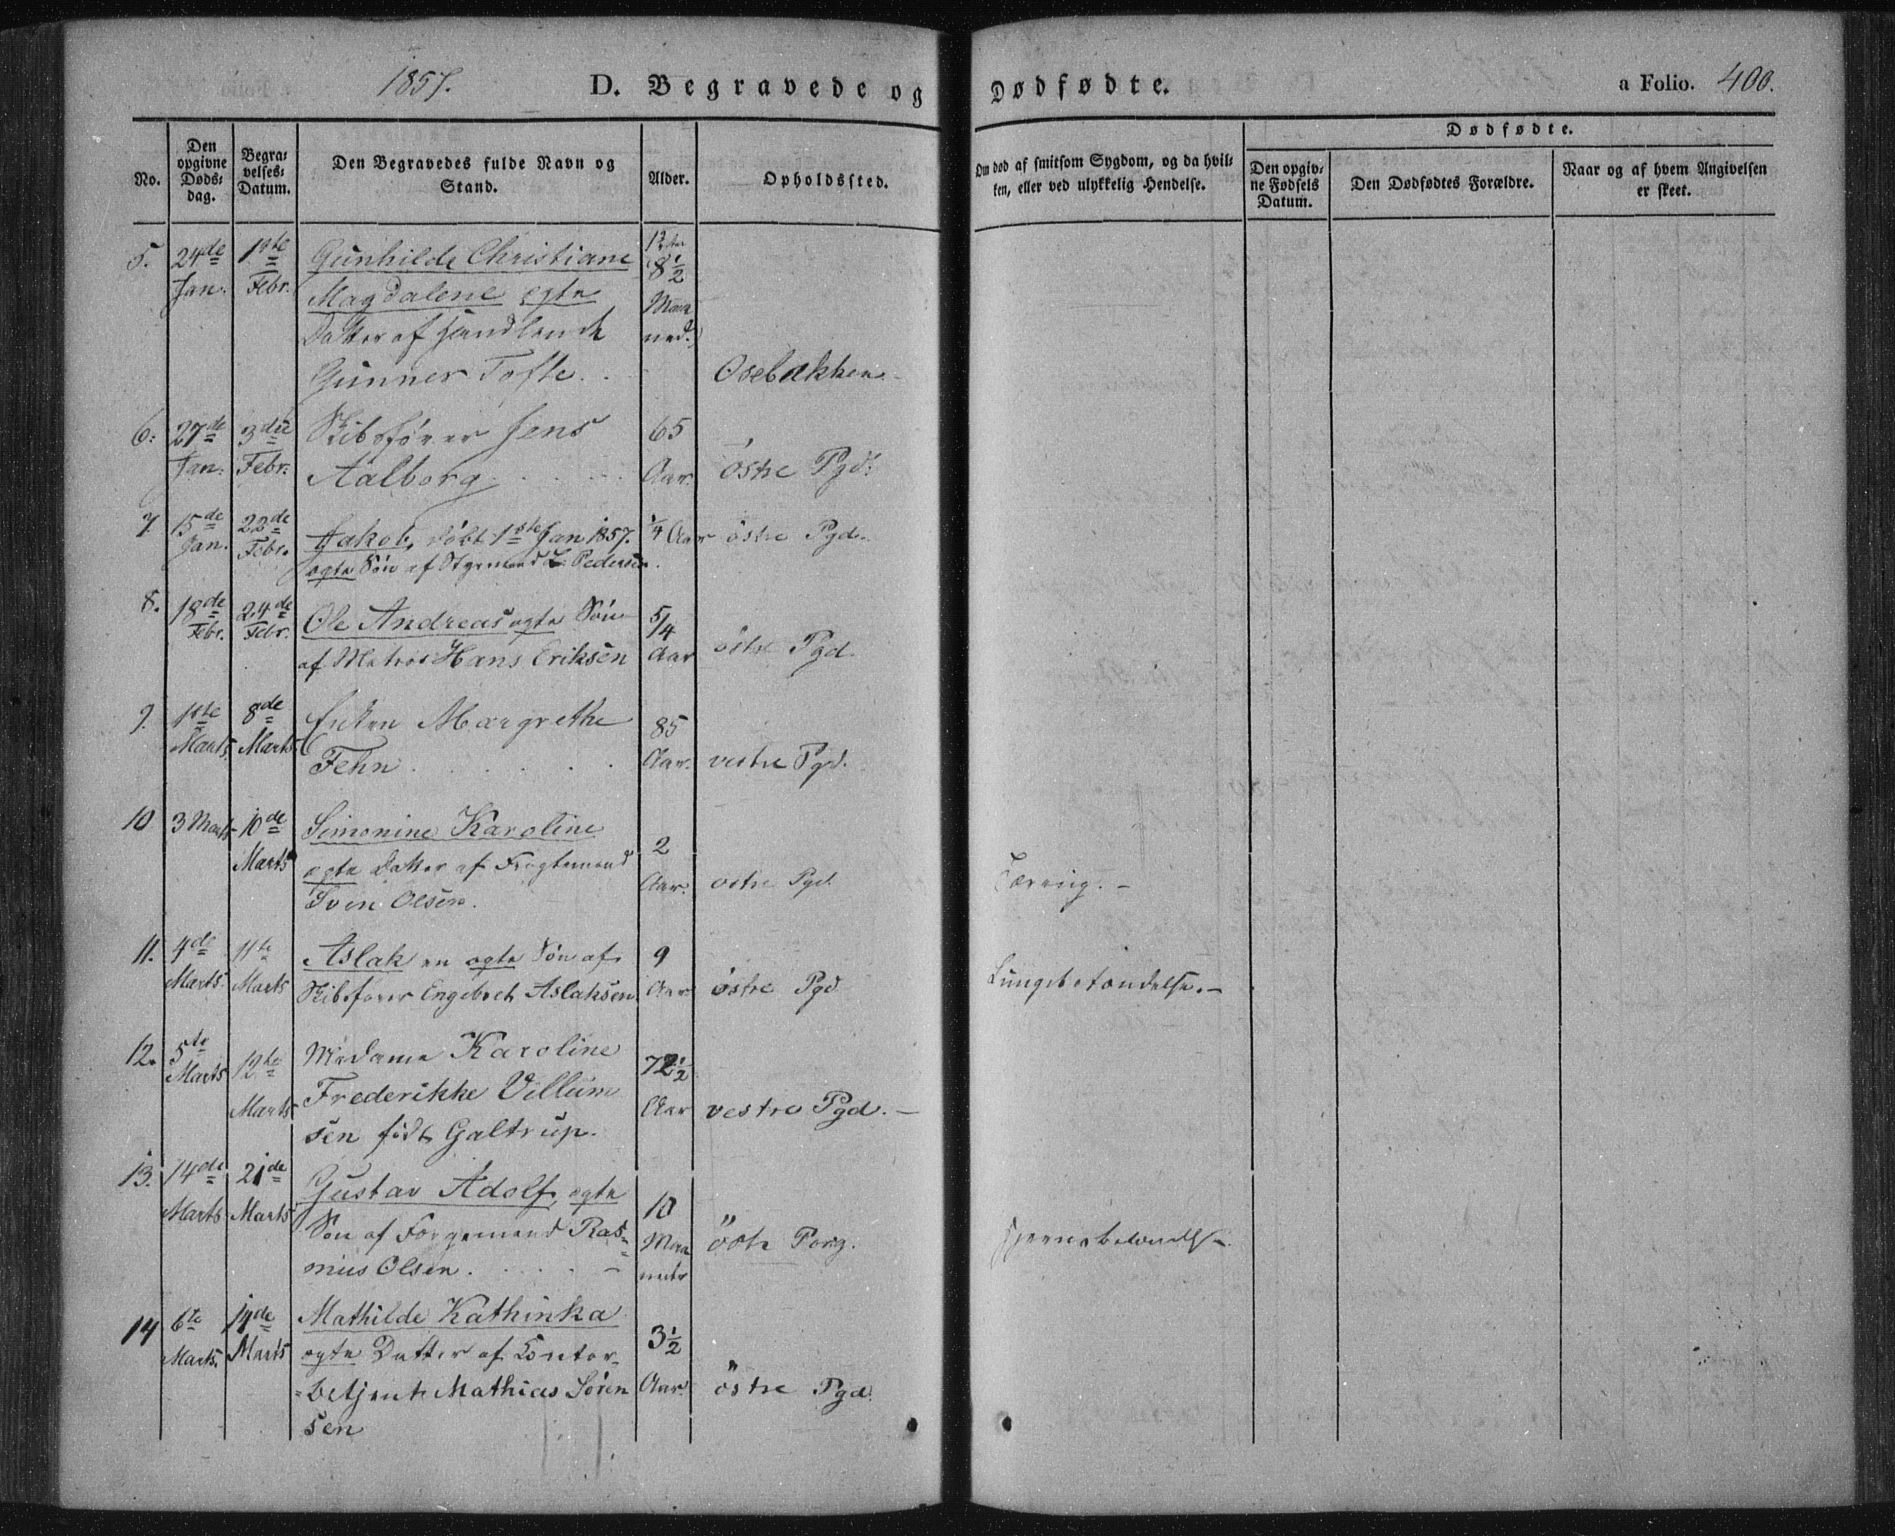 1857. D. Begravede og Dødfødte. a Folio. 400.
No.
Den opgivne Døds-dag.
Begra-velses-Datum.
Den Begravedes fulde Navn og Stand.
Alder.
Opholdssted.
Om død af smitsom Sygdom, og da hvil-
ken, eller ved ulykkelig Hendelse.
Dødfødte.
Den opgiv-ne Fødsels Datum.
Den Dødfødtes Forældre.
Naar og af hvem Angivelsen er skeet.
5. 24de 1ste Gunhilde Christiane
Jan. Febr. Magdalene egte 8½
Datter af Handlende Maa
Gunner Tofte. ned. Osebakken
6. 27de 3die Skibsfører Jens 65
Jan. Febr. Aalborg Aar. östre Pgd.
7 15de 22de Jakob, döbt 1ste Jan 1857. ¼ Aar östre Pgd.
Jan. Febr. egte Sön af Styrmand L. Pedersen.
8. 18de 24de Ole Andreas egte Sön 5/4
Febr. Febr. af Matros Hans Eriksen Aar östre Pgd.
9. 1ste 8de Enken Margrethe 85
Marts. Marts. Fehn Aar. vestre Pgd.
10 3 Marts 10de Simonine Karoline
Marts egte Datter af Fragtemand 2
Sven Olsen. Aar. östre Pgd. Tæring.
11. 4de 11te Aslak en egte Sön af 9
Marts. Marts Skibsfører Engebret Aslaksen Aar östre Pgd. Lungebetændelse.
12. 5te 12te Madame Karoline 72½
Marts Marts Frederikke Villum Aar vestre Pgd.
sen födt Galtrup.
13. 14de 21de Gustav Adolf, egte 10
Marts Marts Sön af Færgemand Ras- Maa östre Porsg.
mus Olsen. neder Hjernebetændelse
14 6te 14de Mathilde Kathinka 3½
Marts. Marts egte Datter af Contor-
betjent Mathias Sören Aar. östre Pgd.
sen